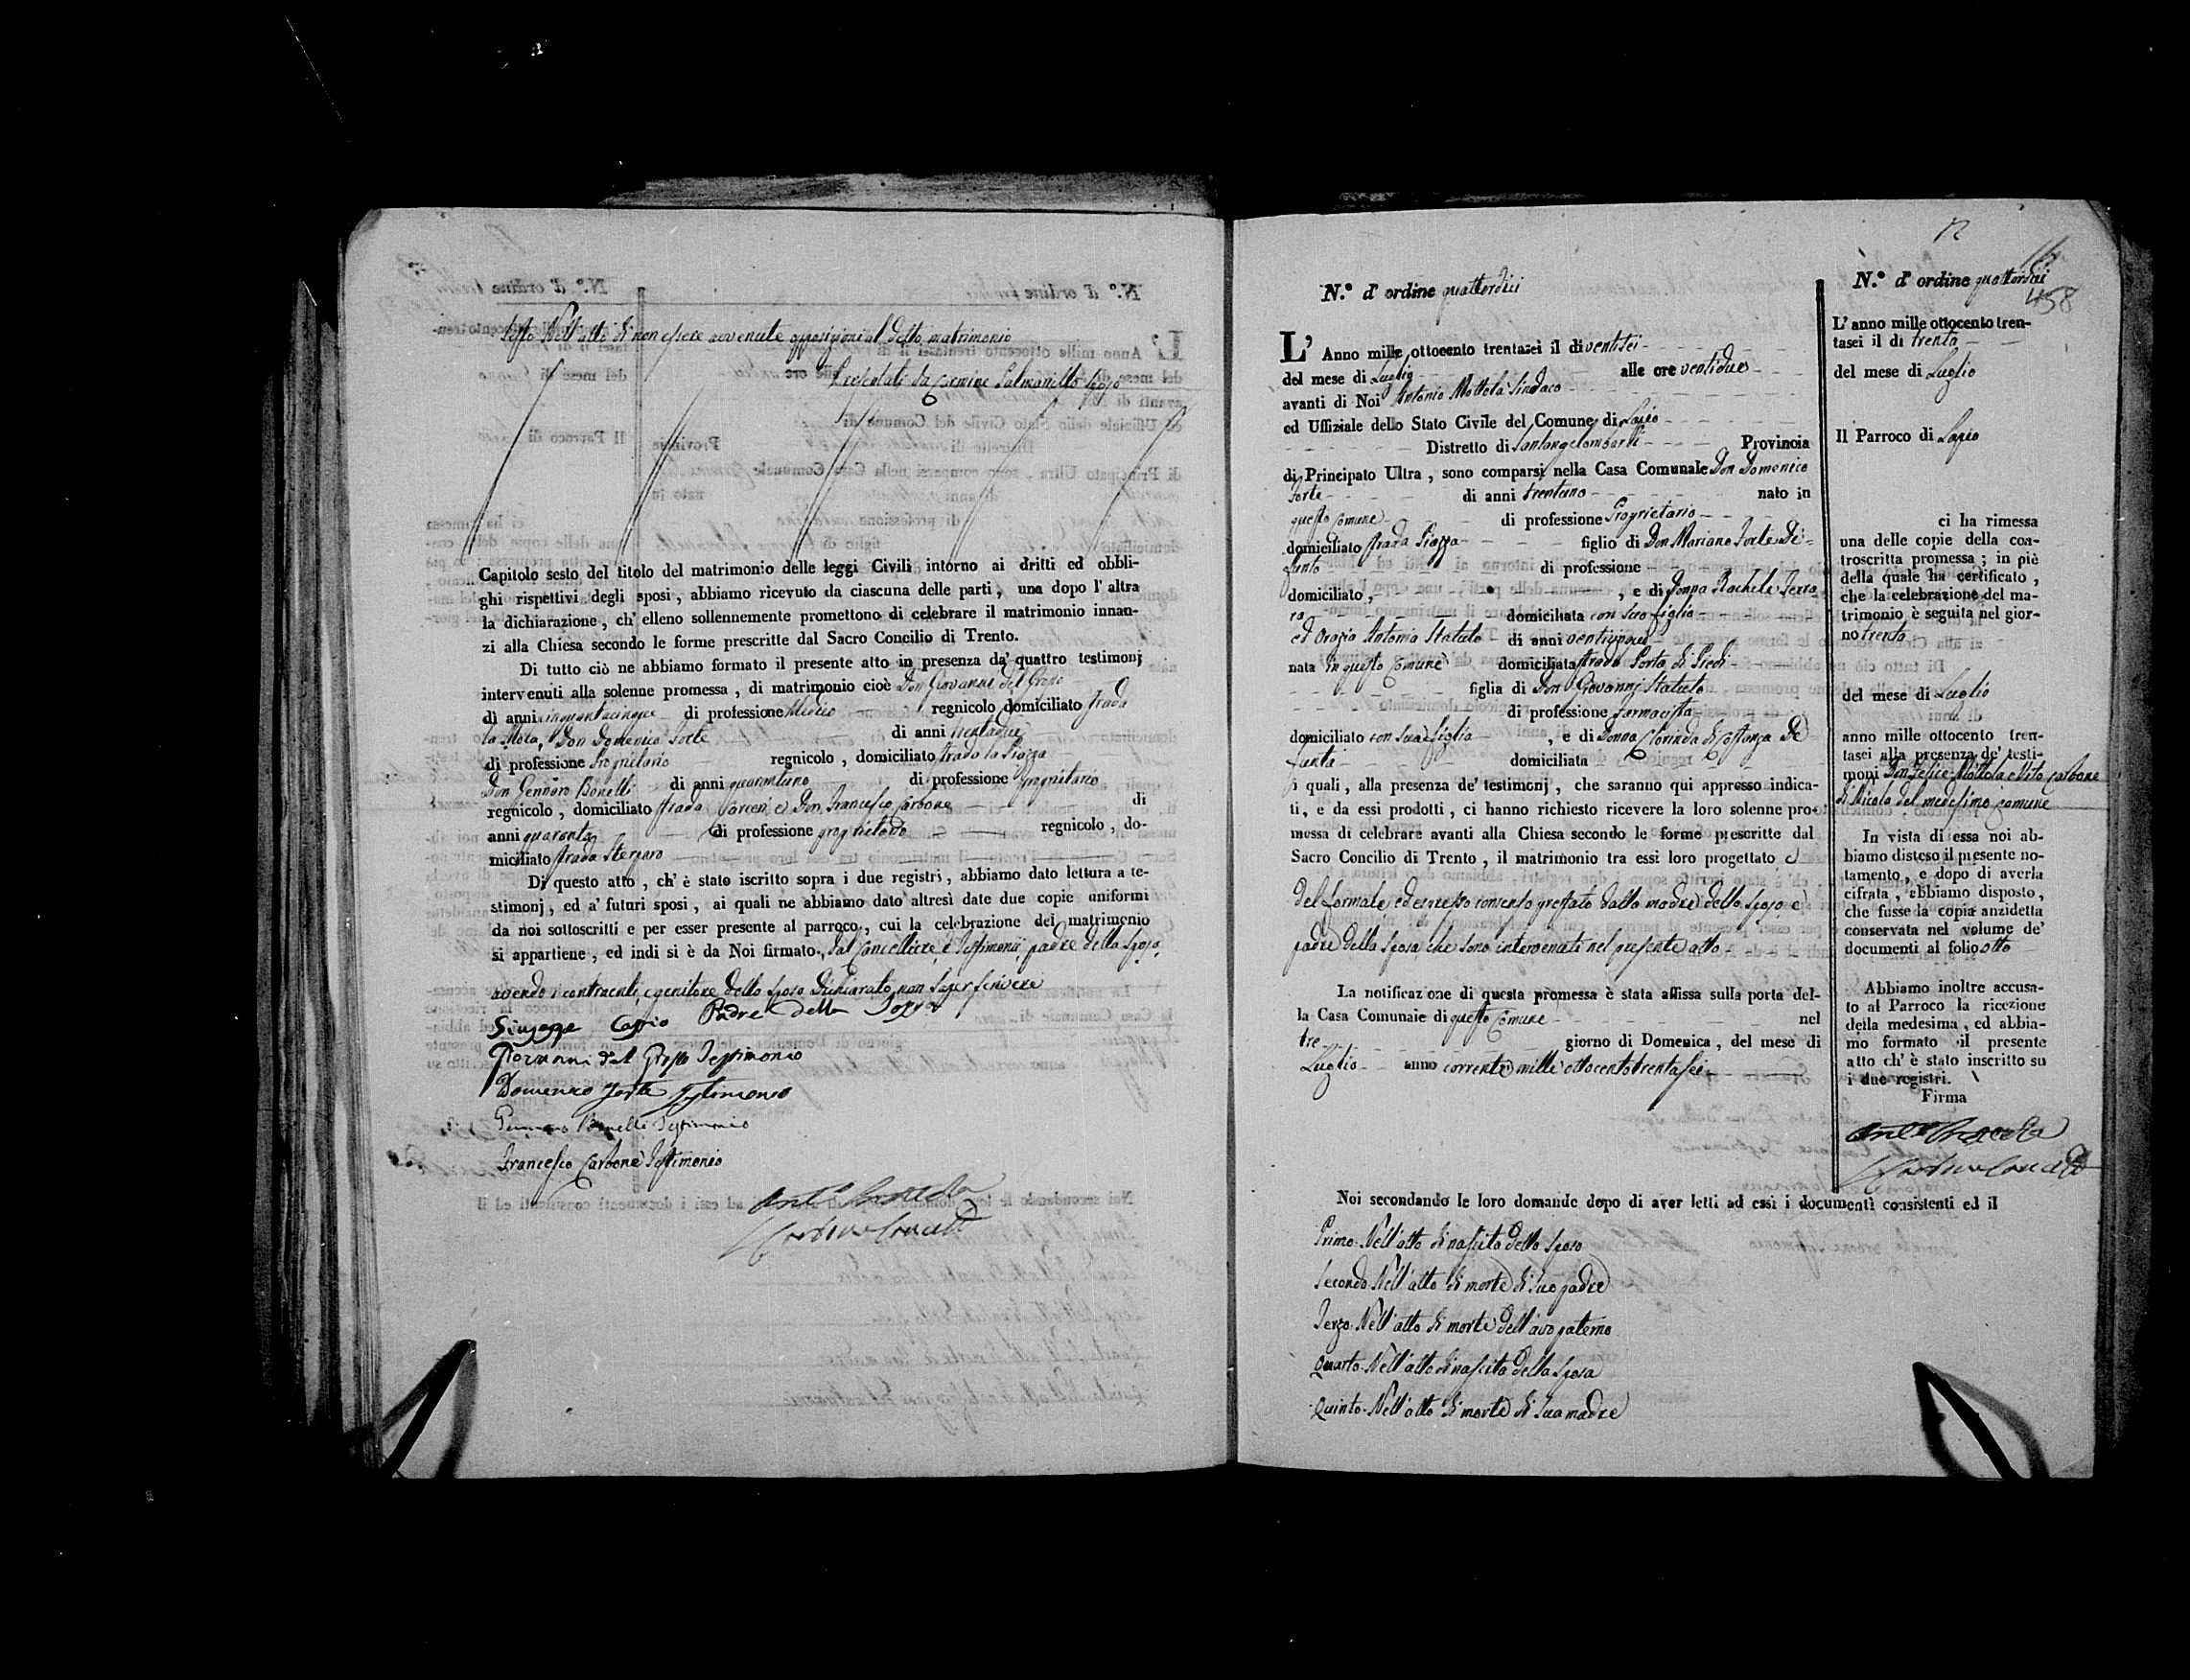 Sesto Nell'atto di non essere avvenute opposizioni al detto matrimonio
Presentati da Carmine Palmariello sposo
Capitolo sesto del titolo del matrimonio delle leggi Civili intorno ai dritti ed obbli-
ghi rispettivi degli sposi, abbiamo ricevuto da ciascuna delle parti, una dopo l'altra
la dichiarazione, ch'elleno sollennemente promettono di celebrare il matrimonio innan-
zi alla Chiesa secondo le forme prescritte dal Sacro Concilio di Trento.
Di tutto ciò ne abbiamo formato il presente atto in presenza da' quattro testimonj
intervenuti alla solenne promessa, di matrimonio cioè Don Giovanni del Grosso
di anni cinquantacinque di professione Medico regnicolo domiciliato strada
Don Domenico Forte di anni trentadue
di professione Proprietario regnicolo, domiciliato strada la Piazza
Don Gennaro Bonelli di anni quarantuno di professione proprietario
regnicolo, domiciliato strada e Don Francesco Carbone di
anni quaranta di professione proprietario regnicolo, do-
miciliato strada
Di questo atto, ch'è stato iscritto sopra i due registri, abbiamo dato lettura a te-
stimonj, ed a' futuri sposi, ai quali ne abbiamo dato altresì date due copie uniformi
da noi sottoscritti e per esser presente al parroco, cui la celebrazione del matrimonio
si appartiene, ed indi si è da Noi firmato, dal Cancelliere, e Testimonii, padre della sposa,
avendo i contraenti, e genitore dello sposo dichiarato non saper scrivere
Giuseppe Padre della Sposa
Giovanni del Grosso Testimonio
Domenico Forte Testimonio
Gennaro Bonelli Testimonio
Francesco Carbone Testimonio
12
458
N.° d'ordine quattordici
L'Anno mille ottocento trentasei il di ventisei
del mese di Luglio alle ore ventidue
avanti di Noi Antonio Mottola Sindaco
ed Uffiziale dello Stato Civile del Comune di Lapio
Distretto di Santangelombardi Provincia
di Principato Ultra, sono comparsi nella Casa Comunale Don Domenico
Forte di anni trentuno nato in
questo Comune di professione Proprietario
domiciliato strada Piazza figlio di Don Mariano Forte De-
funto di professione
domiciliato, , e di Donna Rachele Ferra
ra domiciliata con suo figlio
ed Orazia Antonia Statuto di anni ventinove
nata in questo Comune domiciliata strada Porta di Piedi
figlia di Don Giovanni Statuto
di professione Farmacista
domiciliato con sua figlia , e di Donna Clorinda di Costanza De
funta domiciliata
i quali, alla presenza de' testimonj, che saranno qui appresso indica-
ti, e da essi prodotti, ci hanno richiesto ricevere la loro solenne pro-
messa di celebrare avanti alla Chiesa secondo le forme prescritte dal
Sacro Concilio di Trento, il matrimonio tra essi loro progettato e
del formale, ed espresso consento prestato dalla madre dello sposo, e
padre della sposa, che sono intervenuti nel presente atto
La notificazione di questa promessa è stata affissa sulla porta del-
la Casa Comunale di questo Comune nel
tre giorno di Domenica, del mese di
Luglio anno corrente mille ottocentotrentasei
Noi secondando le loro domande dopo di aver letti ad essi i documenti consistenti ed il
Primo Nell'atto di nascita dello sposo
Secondo Nell'atto di morte di suo padre
Terzo Nell'atto di morte dell'avo paterno
Quarto Nell'atto di nascita della sposa
Quinto Nell'atto di morte di sua madre
N.° d'ordine quattordici
L'anno mille ottocento tren-
tasei il di trenta
del mese di Luglio
Il Parroco di Lapio
ci ha rimessa
una delle copie della con-
troscritta promessa; in piè
della quale ha certificato,
che la celebrazione del ma-
trimonio è seguita nel gior-
no trenta
del mese di Luglio
anno mille ottocento tren-
tasei alla presenza de' testi-
moni Don Felice Mottola e Vito Carbone
di Nicola del medesimo comune
In vista di essa noi ab-
biamo disteso il presente no-
tamento, e dopo di averla
cifrata, abbiamo disposto,
che fusse la copia anzidetta
conservata nel volume de'
documenti al folio otto
Abbiamo inoltre accusa-
to al Parroco la ricezione
della medesima, ed abbia-
mo formato il presente
atto ch'è stato inscritto su
i due registri.
Firma